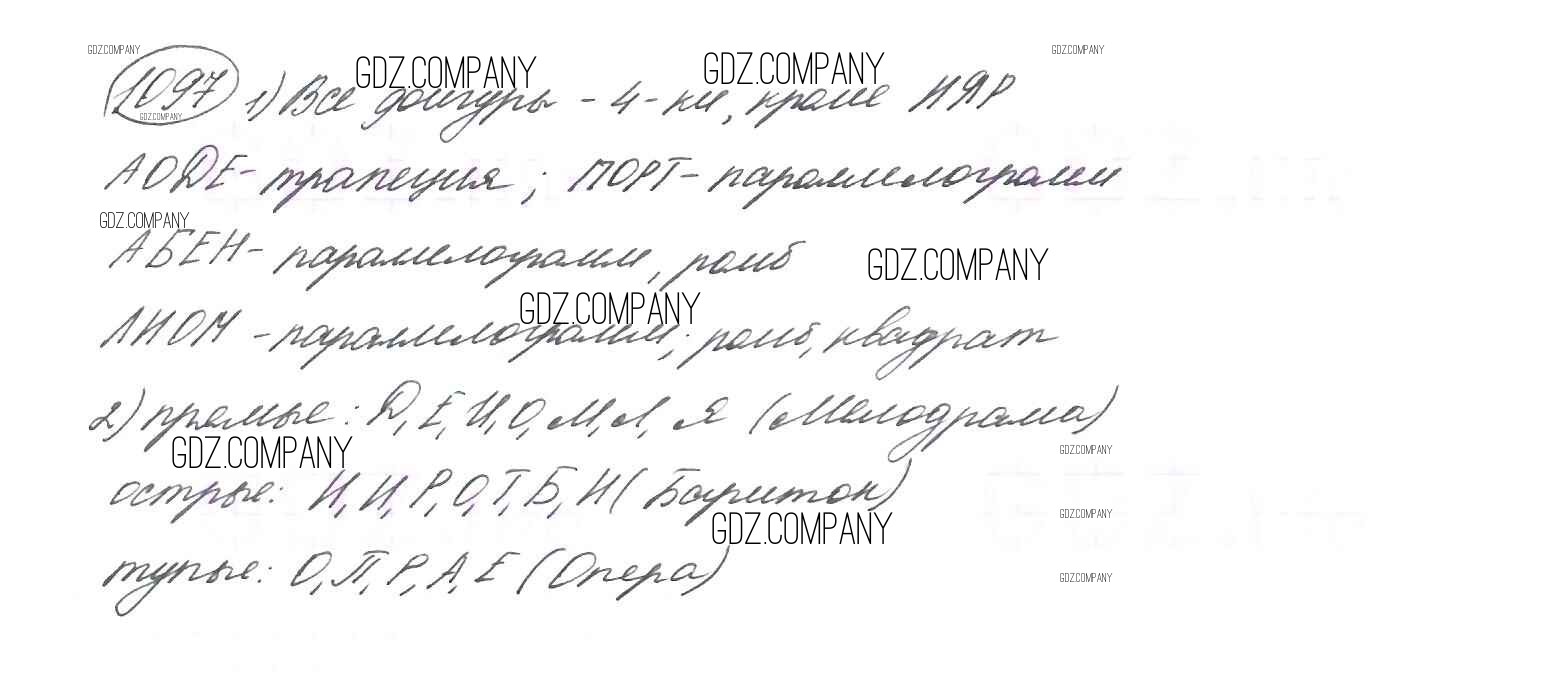 GDZ.COMPANY GDZ.COMPANY GDZ.COMPANY GDZ.COMPANY
1097 1) Все фигуры - 4-ки, кроме ИЯР
GDZ.COMPANY
АОДЕ - трапеция; ПОРТ - параллелограмм
GDZ.COMPANY
АБЕН - параллелограмм, ромб
GDZ.COMPANY
GDZ.COMPANY
ЛИОМ - параллелограмм; ромб, квадрат
2) прямые: Д, Е, И, О, М, Л, Я (Мелодрама)
GDZ.COMPANY GDZ.COMPANY
острые: И, И, Р, О, Т, Б, Н (Баритон)
GDZ.COMPANY GDZ.COMPANY
тупые: О, П, Р, А, Е (Опера)
GDZ.COMPANY